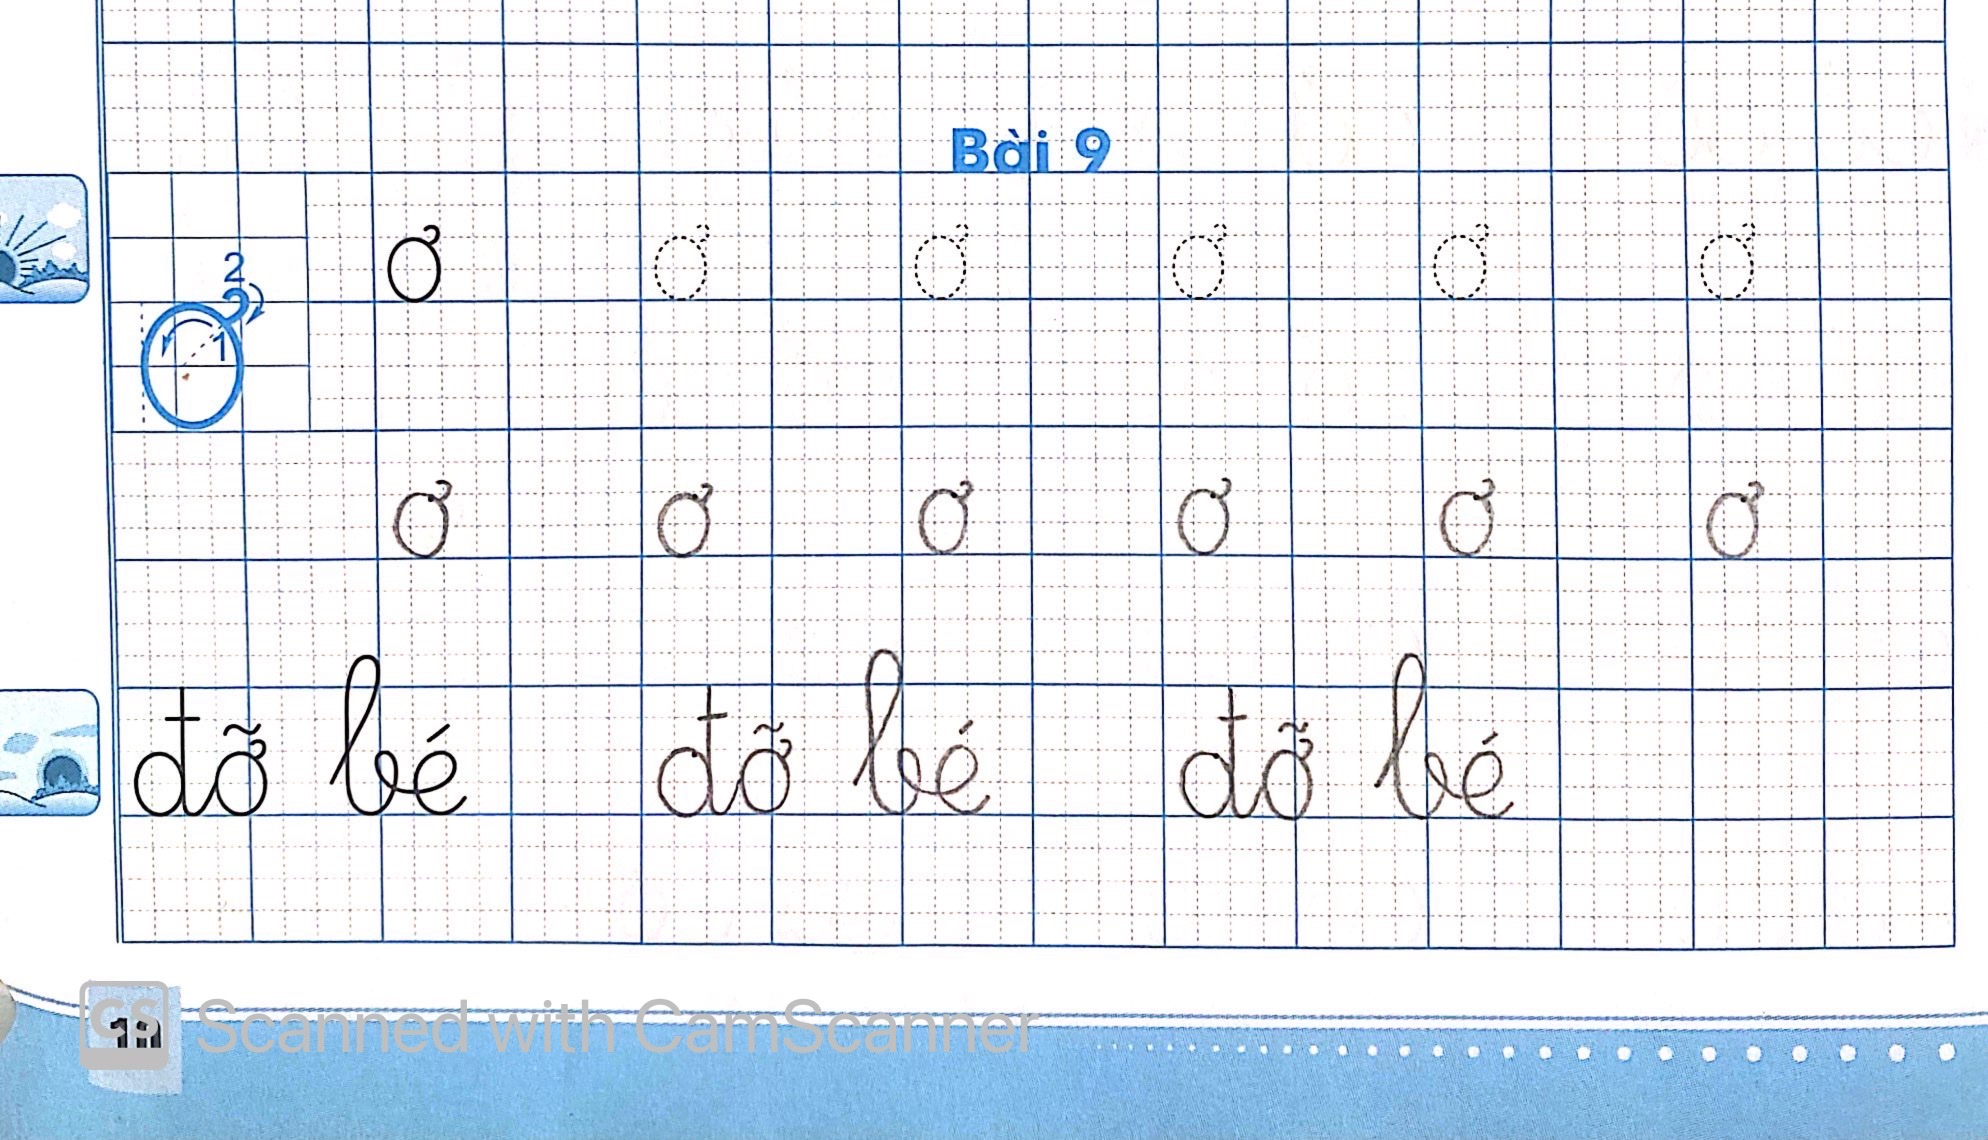 Bài 9
2
1
ơ ơ ơ ơ ơ ơ
ơ ơ ơ ơ ơ ơ
đỡ bé đỡ bé đỡ bé
CS Scanned with CamScanner